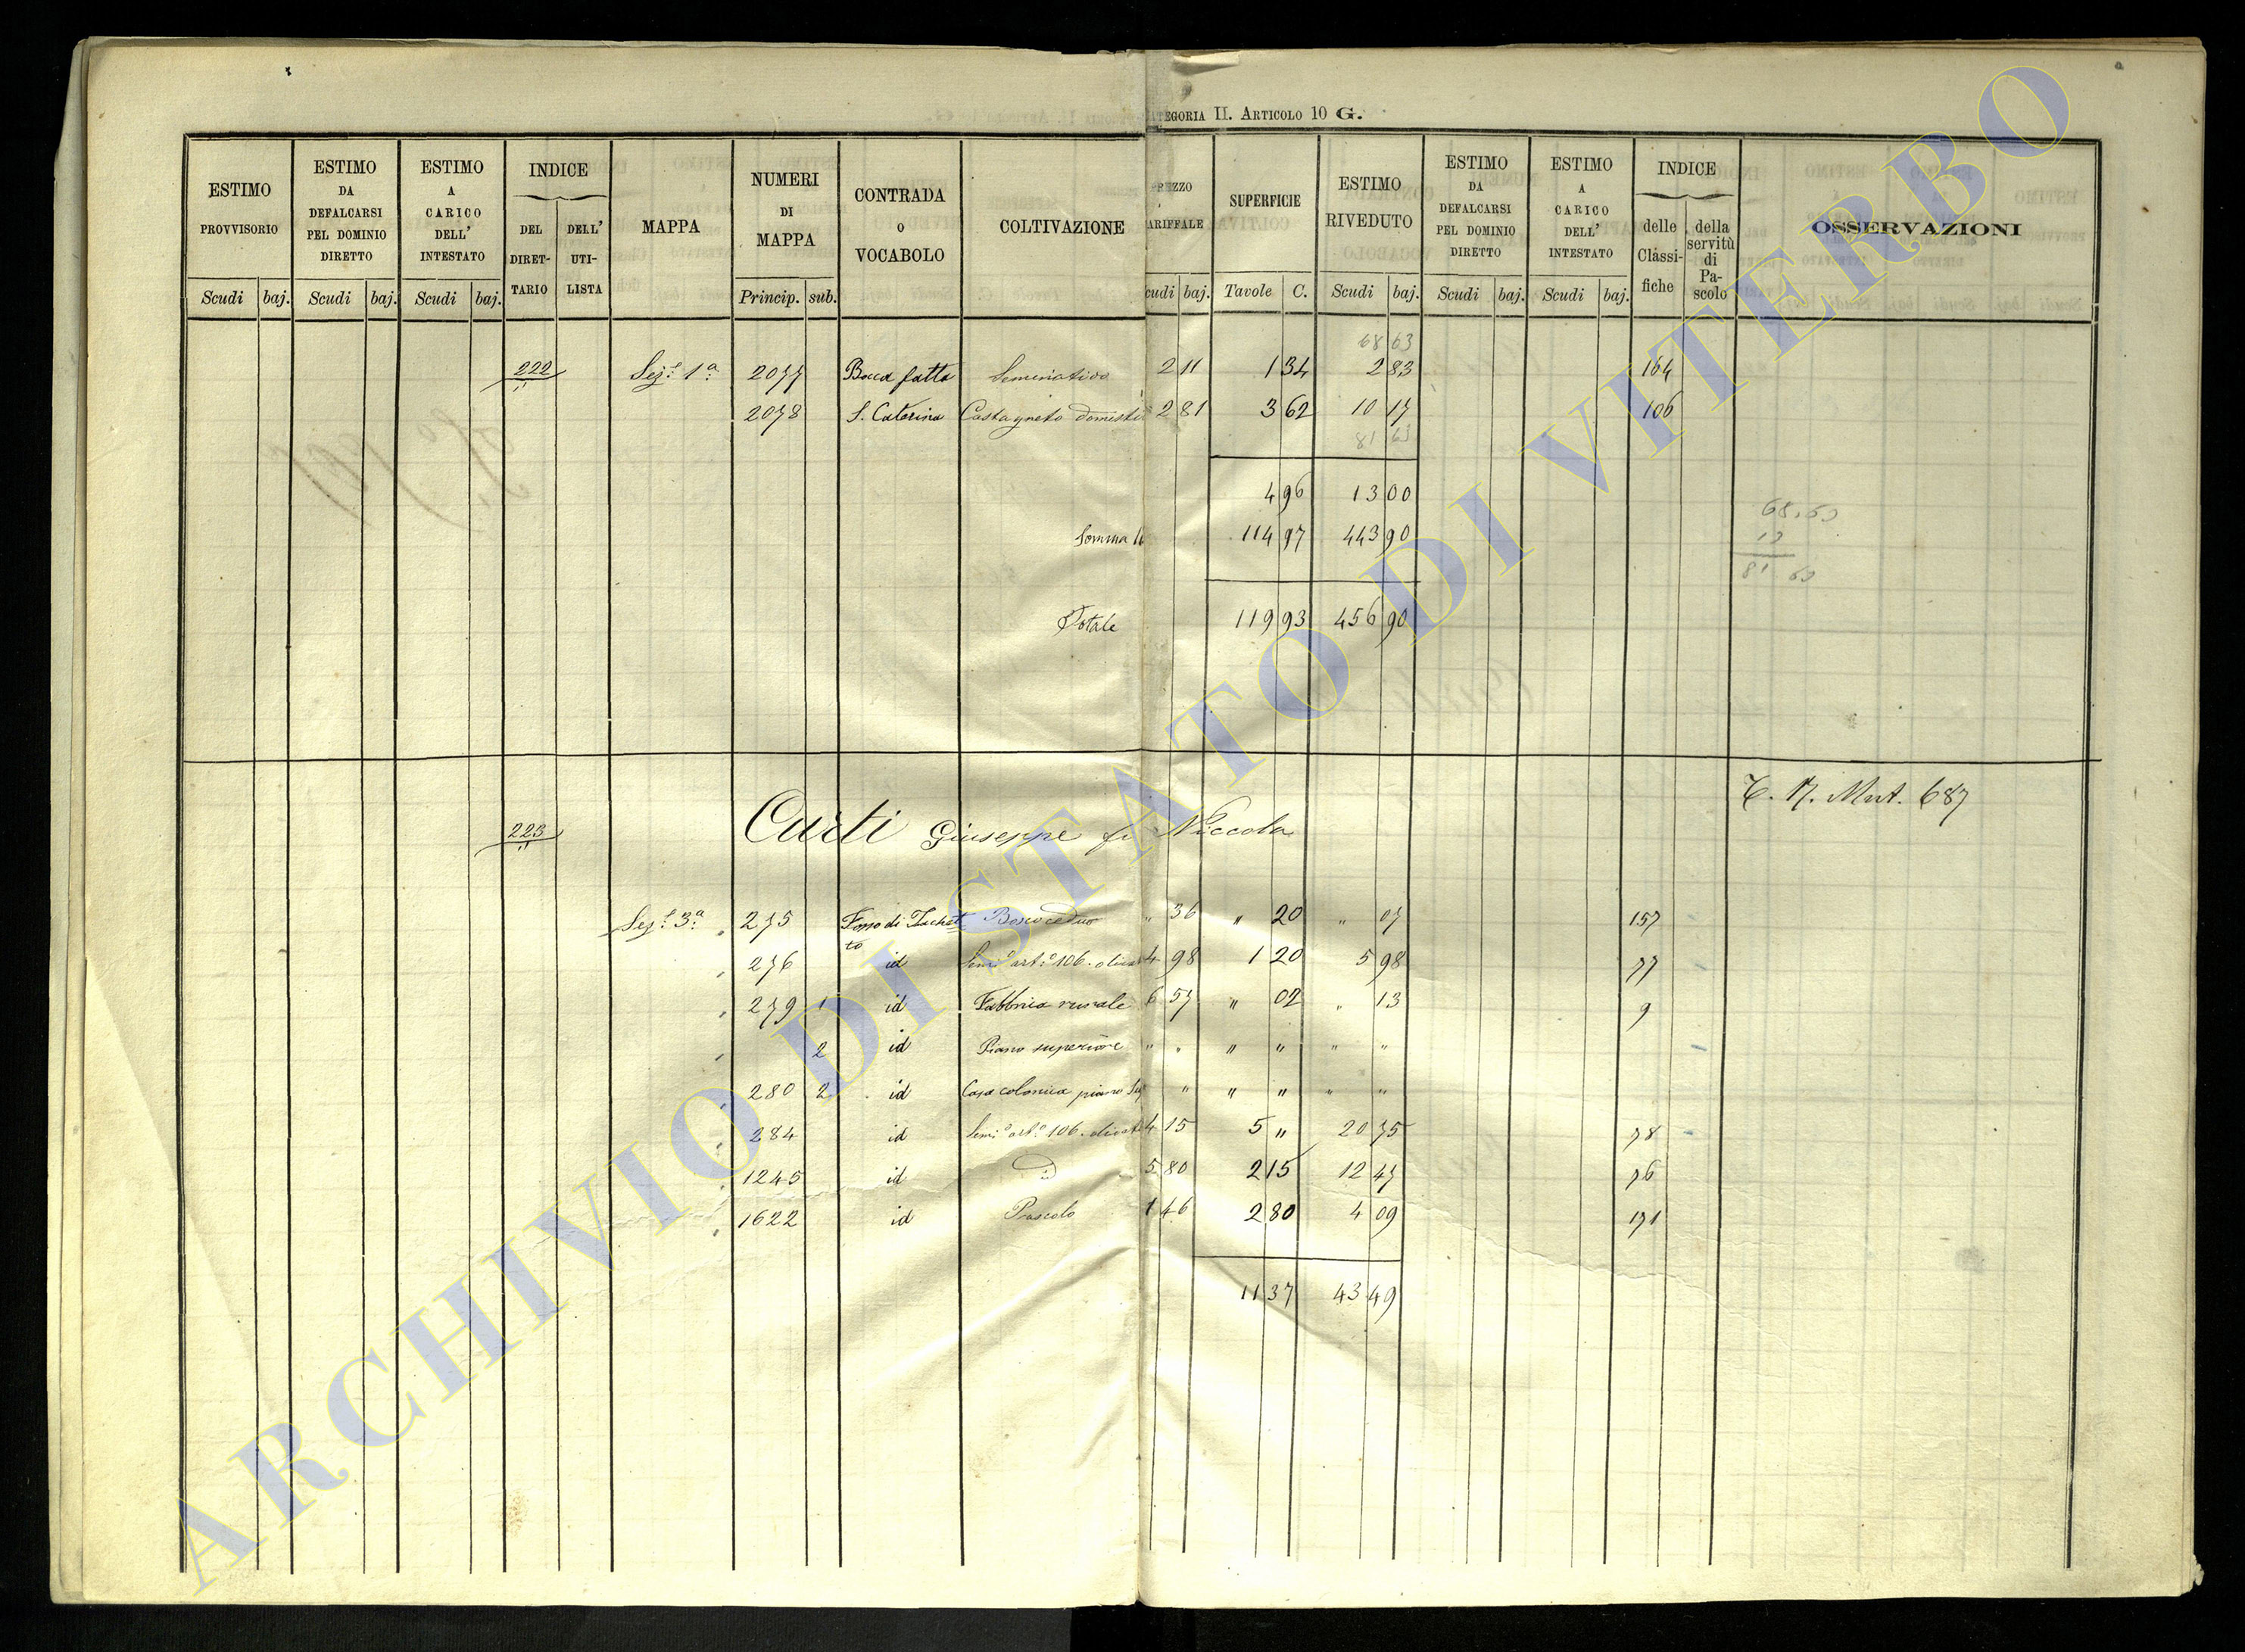 CATEGORIA II. ARTICOLO 10 G.
ESTIMO PROVVISORIO Scudi baj.
ESTIMO DA DEFALCARSI PEL DOMINIO DIRETTO Scudi baj.
ESTIMO A CARICO DELL' INTESTATO Scudi baj.
INDICE DEL DIRET-TARIO DELL' UTI-LISTA
MAPPA
NUMERI DI MAPPA Princip. sub.
CONTRADA o VOCABOLO
COLTIVAZIONE
PREZZO TARIFFALE Scudi baj.
SUPERFICIE Tavole C.
ESTIMO RIVEDUTO Scudi baj.
ESTIMO DA DEFALCARSI PEL DOMINIO DIRETTO Scudi baj.
ESTIMO A CARICO DELL' INTESTATO Scudi baj.
INDICE delle Classi-fiche della servitù di Pa-scolo
OSSERVAZIONI
68 63
222 Sez.e 1a 2077 Bocca fatta Seminativo 2 11 1 34 2 83 164
2078 S. Caterina Castagneto domesti 2 81 3 62 10 17 106
81 63
4 96 13 00
68.63
Somma 114 97 443 90
13
81 63
Totale 119 93 456 90
T. N. Mut. 687
223 Curti Giuseppe fu Niccola
Sez.e 3a 275 Fosso di Boscoceduo " 36 " 20 " 07 157
276 id Semi.o art.o 106. olivat 4 98 1 20 5 98 77
279 1 id Fabbrica rurale 6 57 " 02 " 13 9
2 id Piano superiore " " " " " "
280 2 id Casa colonica piano Sup " " " " "
284 id Semi.o art.o 106. olivat 4 15 5 " 20 75 78
1245 id id 5 80 2 15 12 47 76
1622 id Pascolo 1 46 2 80 4 09 171
11 37 43 49
ARCHIVIO DI STATO DI VITERBO